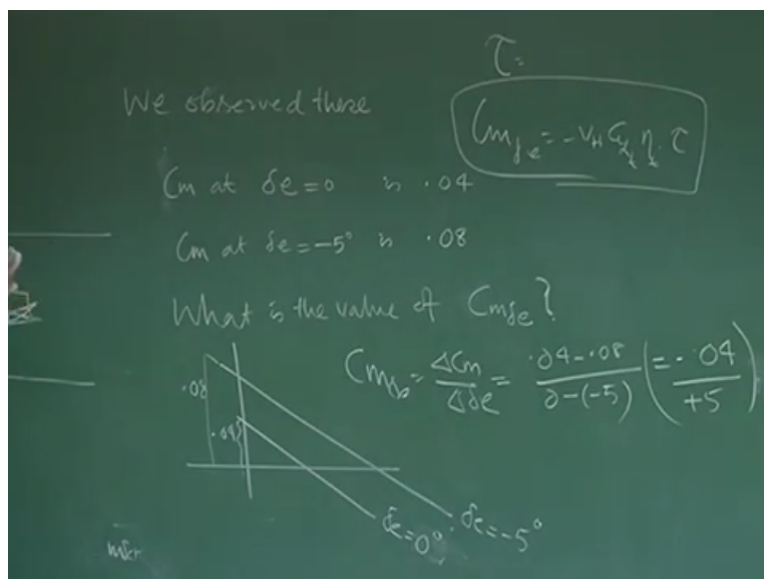 τ=
We observed there
Cmδe = -VH CLαt ηt τ
Cm at δe=0 is .04
Cm at δe=-5° is .08
What is the value of Cmδe?
Cmδe = ΔCm/Δδe = (.04-.08)/(0-(-5)) (= -.04/+5)
.08
.04
δe=0°
δe=-5°